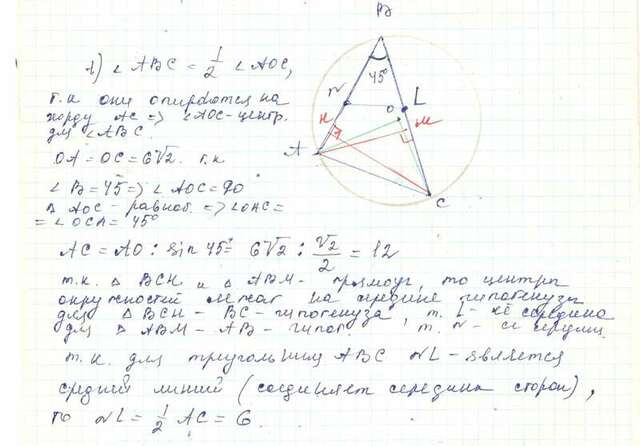 B
1) ∠ABC = 1/2 ∠AOC,
т.к они опираются на
хорду AC => ∠AOC-центр.
для ∠ABC.
OA = OC = 6√2. т.к
∠B = 45 => ∠AOC = 90
△ AOC - равноб. => ∠OAC =
= ∠OCA = 45°
45°
N
L
H
O
M
A
C
AC = AO : sin 45° = 6√2 : √2/2 = 12
т.к. △ BCH и △ ABM - прямоуг, то центры
окружностей лежат на середине гипотенузы
для △ BCH - BC - гипотенуза, т. L - её середина
для △ ABM - AB - гипот, т. N - её середин.
т.к. для треугольника ABC NL - является
средней линией (соединяет середины сторон),
то NL = 1/2 AC = 6.